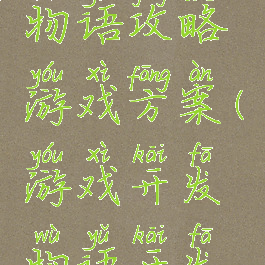 物语攻略
yóu xì fāng àn
游戏方案(
yóu xì kāi fā
游戏开发
wù yǔ kāi fā
物语开发